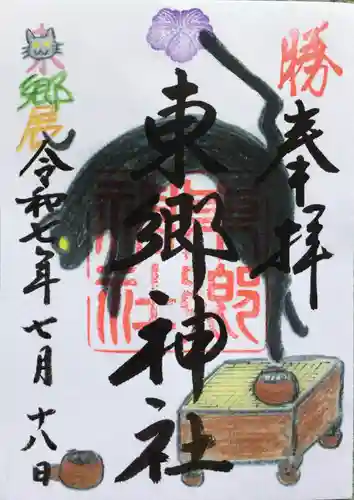 勝
奉拝
東郷神社
東郷展
令和七年七月十八日